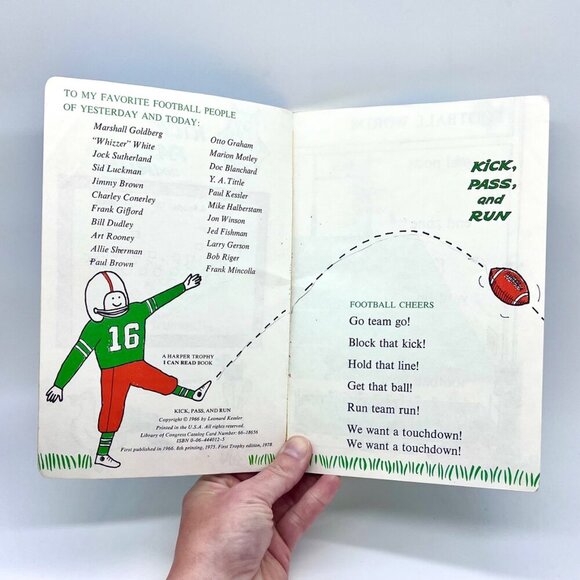 TO MY FAVORITE FOOTBALL PEOPLE
OF YESTERDAY AND TODAY:
Marshall Goldberg
"Whizzer" White
Jock Sutherland
Sid Luckman
Jimmy Brown
Charley Conerley
Frank Gifford
Bill Dudley
Art Rooney
Allie Sherman
Paul Brown
Otto Graham
Marion Motley
Doc Blanchard
Y. A. Tittle
Paul Kessler
Mike Halberstam
Jon Winson
Jed Fishman
Larry Gerson
Bob Riger
Frank Mincolla
16
A HARPER TROPHY
I CAN READ BOOK
KICK, PASS, AND RUN
Copyright © 1966 by Leonard Kessler
Printed in the U.S.A. All rights reserved.
Library of Congress Catalog Card Number: 66-18656
ISBN 0-06-444012-5
First published in 1966. 8th printing, 1975. First Trophy edition, 1978
KICK,
PASS,
and
RUN
FOOTBALL CHEERS
Go team go!
Block that kick!
Hold that line!
Get that ball!
Run team run!
We want a touchdown!
We want a touchdown!